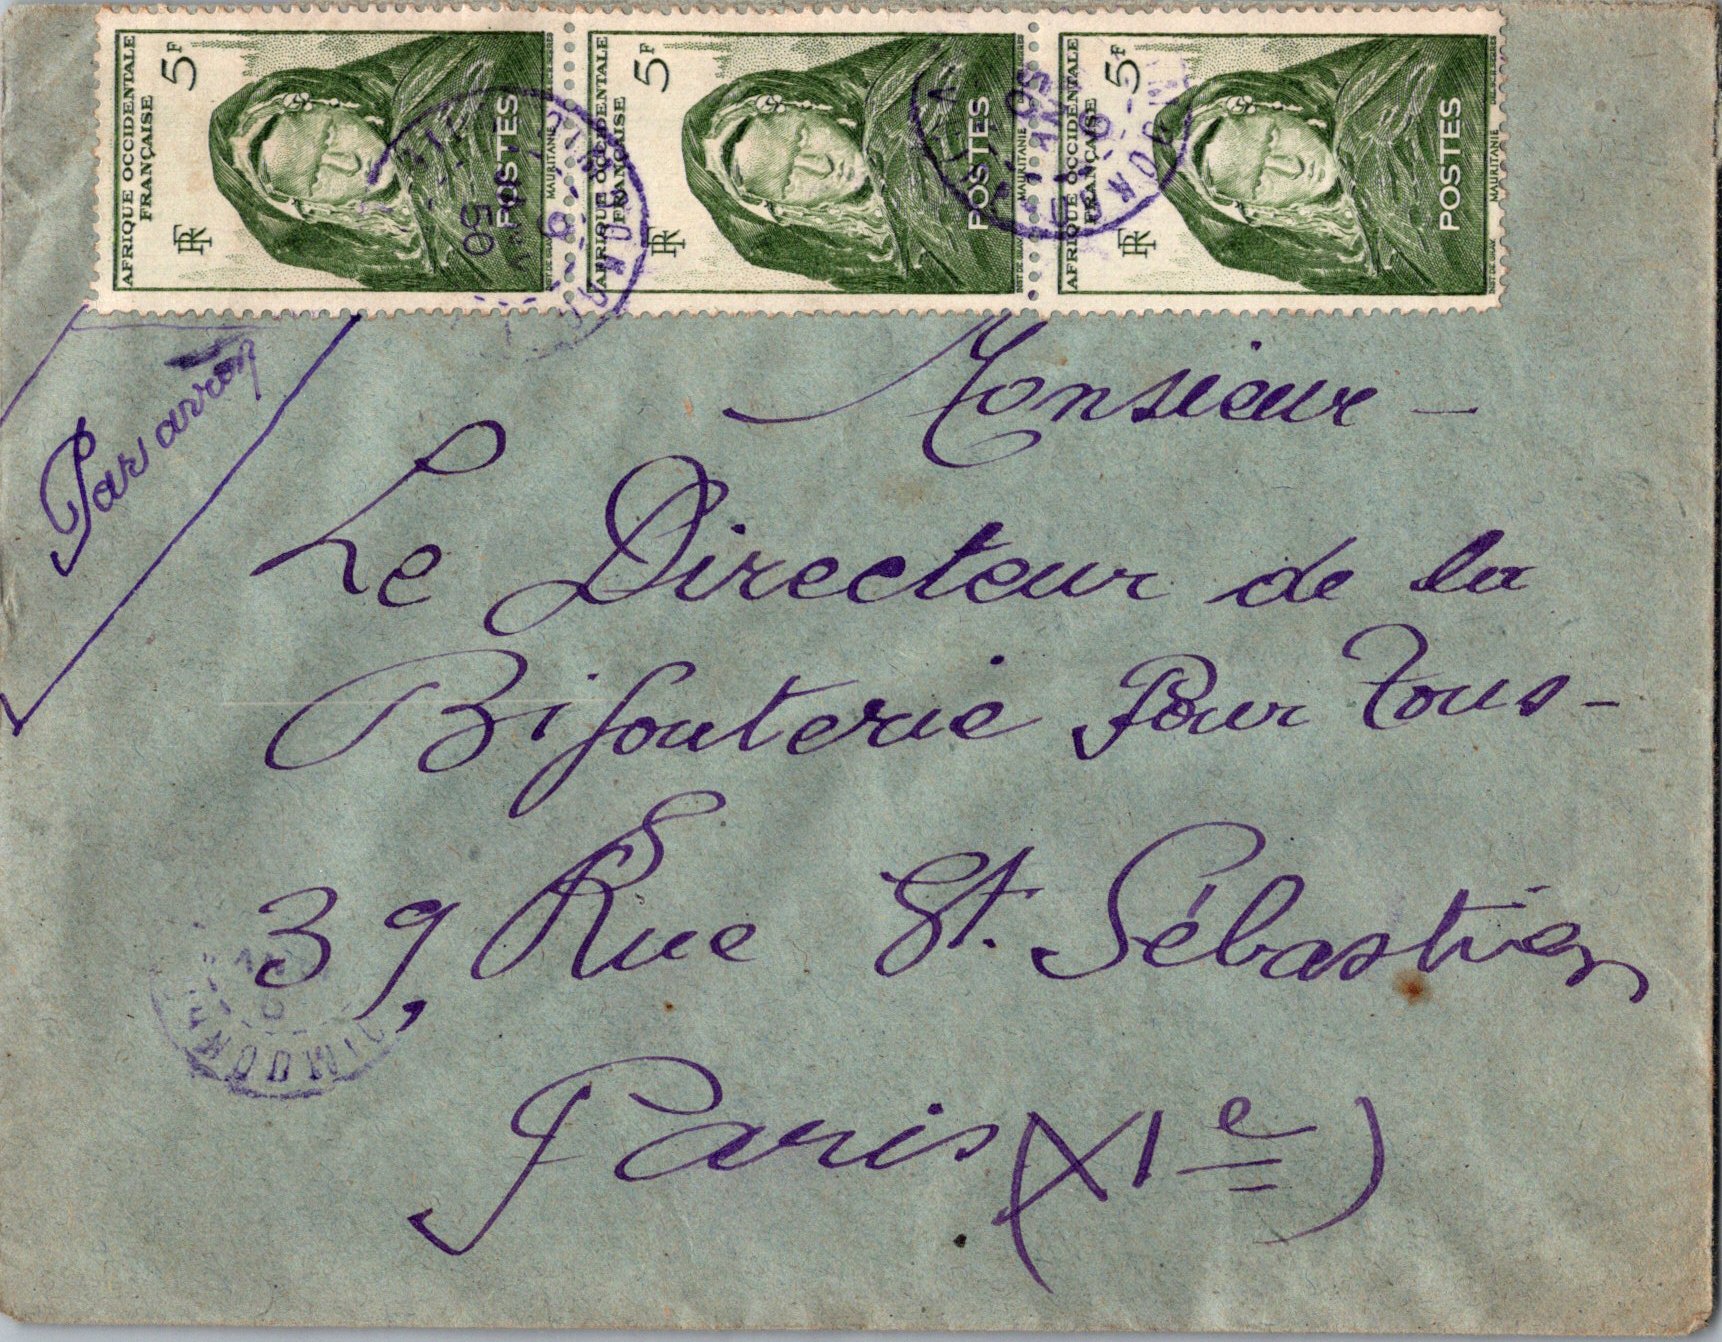 AFRIQUE OCCIDENTALE
FRANÇAISE
5F
RF
POSTES
MAURITANIE
AFRIQUE OCCIDENTALE
FRANÇAISE
5F
RF
POSTES
MAURITANIE
AFRIQUE OCCIDENTALE
FRANÇAISE
5F
RF
POSTES
MAURITANIE
50
Par avion
Monsieur -
Le Directeur de la
Bijouterie Pour Tous -
39, Rue St. Sébastien
Paris (XIe)